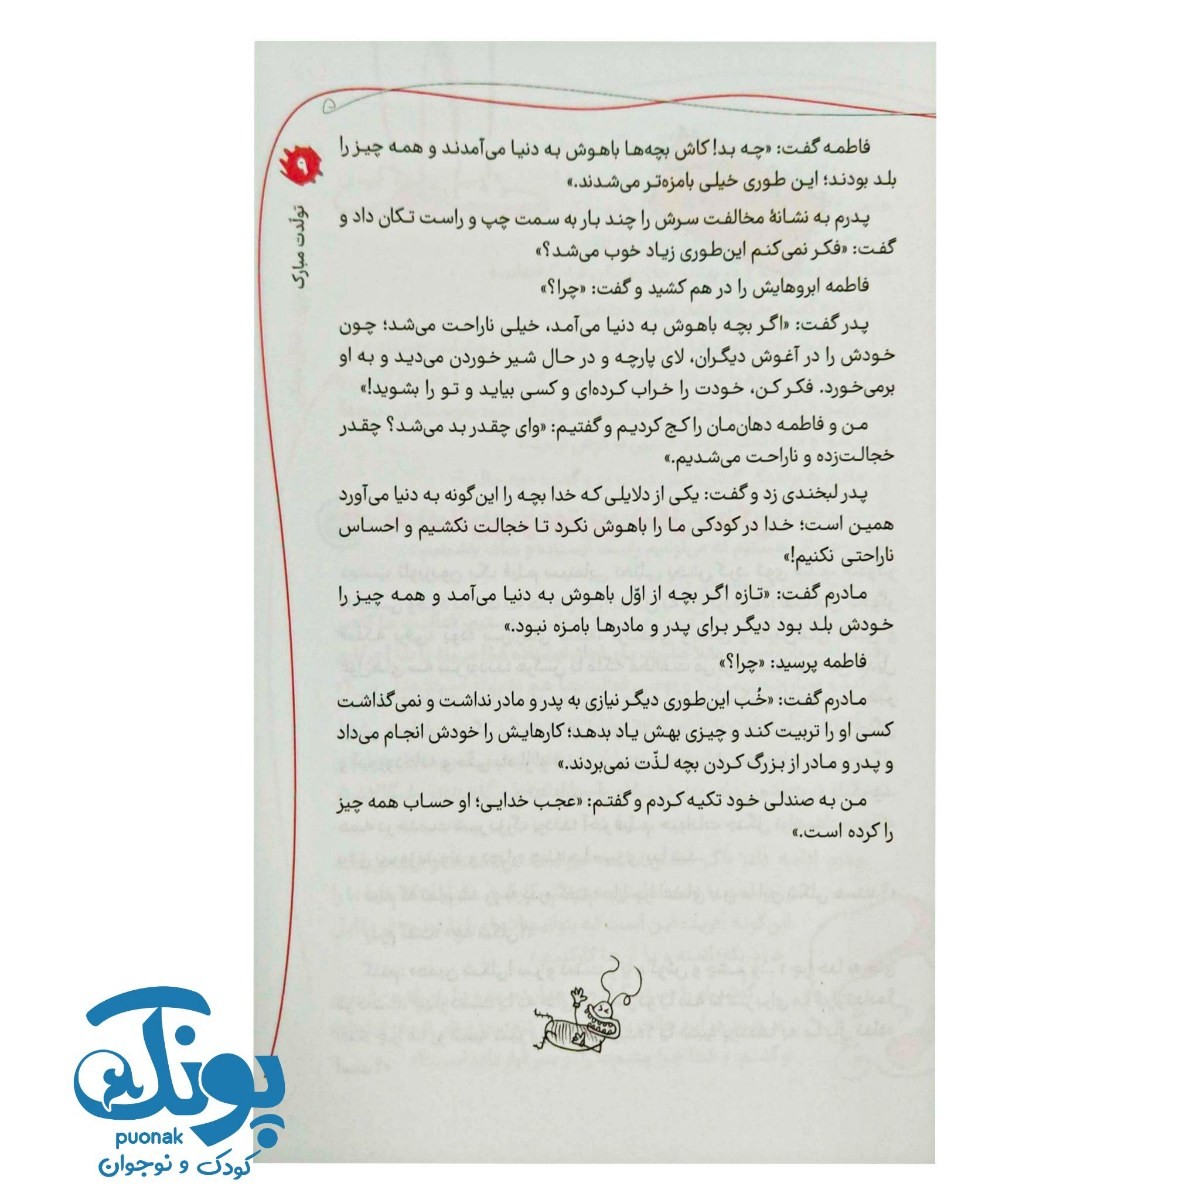 فاطمه گفت: «چه بد! کاش بچه‌ها باهوش به دنیا می‌آمدند و همه چیز را
بلد بودند؛ این طوری خیلی بامزه‌تر می‌شدند.»
پدرم به نشانهٔ مخالفت سرش را چند بار به سمت چپ و راست تکان داد و
گفت: «فکر نمی‌کنم این‌طوری زیاد خوب می‌شد؟»
فاطمه ابروهایش را در هم کشید و گفت: «چرا؟»
پدر گفت: «اگر بچه باهوش به دنیا می‌آمد، خیلی ناراحت می‌شد؛ چون
خودش را در آغوش دیگران، لای پارچه و در حال شیر خوردن می‌دید و به او
برمی‌خورد. فکر کن، خودت را خراب کرده‌ای و کسی بیاید و تو را بشوید!»
من و فاطمه دهان‌مان را کج کردیم و گفتیم: «وای چقدر بد می‌شد؟ چقدر
خجالت‌زده و ناراحت می‌شدیم.»
پدر لبخندی زد و گفت: یکی از دلایلی که خدا بچه را این‌گونه به دنیا می‌آورد
همین است؛ خدا در کودکی ما را باهوش نکرد تا خجالت نکشیم و احساس
ناراحتی نکنیم!»
مادرم گفت: «تازه اگر بچه از اوّل باهوش به دنیا می‌آمد و همه چیز را
خودش بلد بود دیگر برای پدر و مادرها بامزه نبود.»
فاطمه پرسید: «چرا؟»
مادرم گفت: «خُب این‌طوری دیگر نیازی به پدر و مادر نداشت و نمی‌گذاشت
کسی او را تربیت کند و چیزی بهش یاد بدهد؛ کارهایش را خودش انجام می‌داد
و پدر و مادر از بزرگ کردن بچه لذّت نمی‌بردند.»
من به صندلی خود تکیه کردم و گفتم: «عجب خدایی؛ او حساب همه چیز
را کرده است.»
۹
تولّدت مبارک
پونک
puonak
کودک و نوجوان